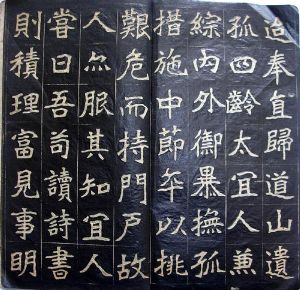 迨奉直歸道山遺
孤四齡太宜人兼
綜內外禦暴撫孤
措施中節卒以挑
艱危而持門戶故
人尒服其知宜人
嘗曰吾苟讀詩書
則積理富見事明